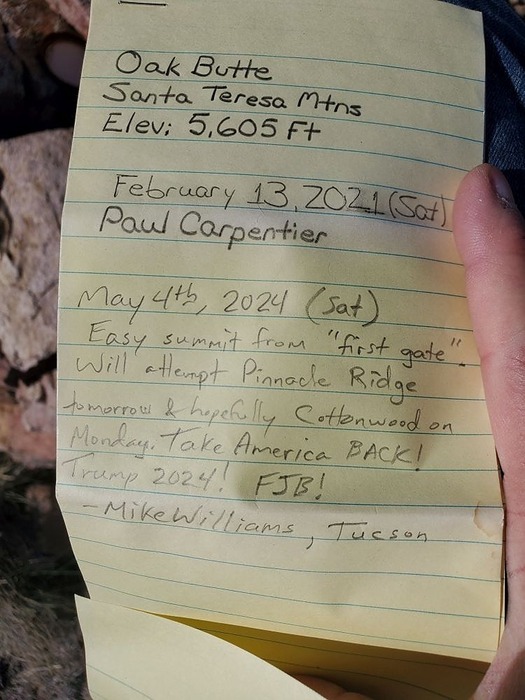 Oak Butte
Santa Teresa Mtns
Elev: 5,605 Ft
February 13, 2021 (Sat)
Paul Carpentier
May 4th, 2024 (Sat)
Easy summit from "first gate".
Will attempt Pinnacle Ridge
tomorrow & hopefully Cottonwood on
Monday. Take America BACK!
Trump 2024! FJB!
- Mike Williams, Tucson